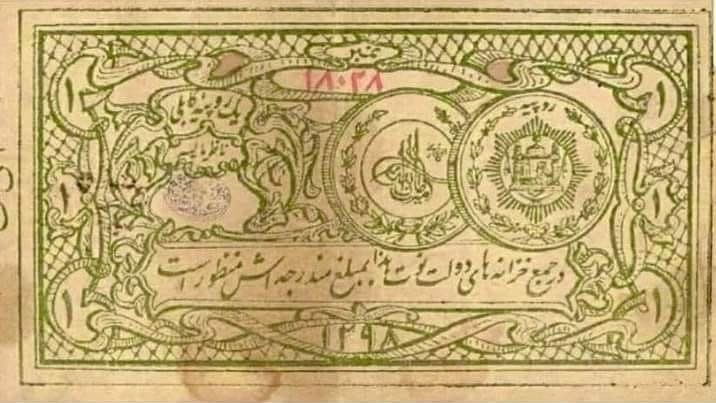 نمبر
۱۸۰۲۸
یک روپیه کابلی
روپیه
در جمیع خزانه های دولت نوت هذا بمبلغ مندرجه اش منظور است
۱۲۹۸
۱
۱
۱
۱
۱